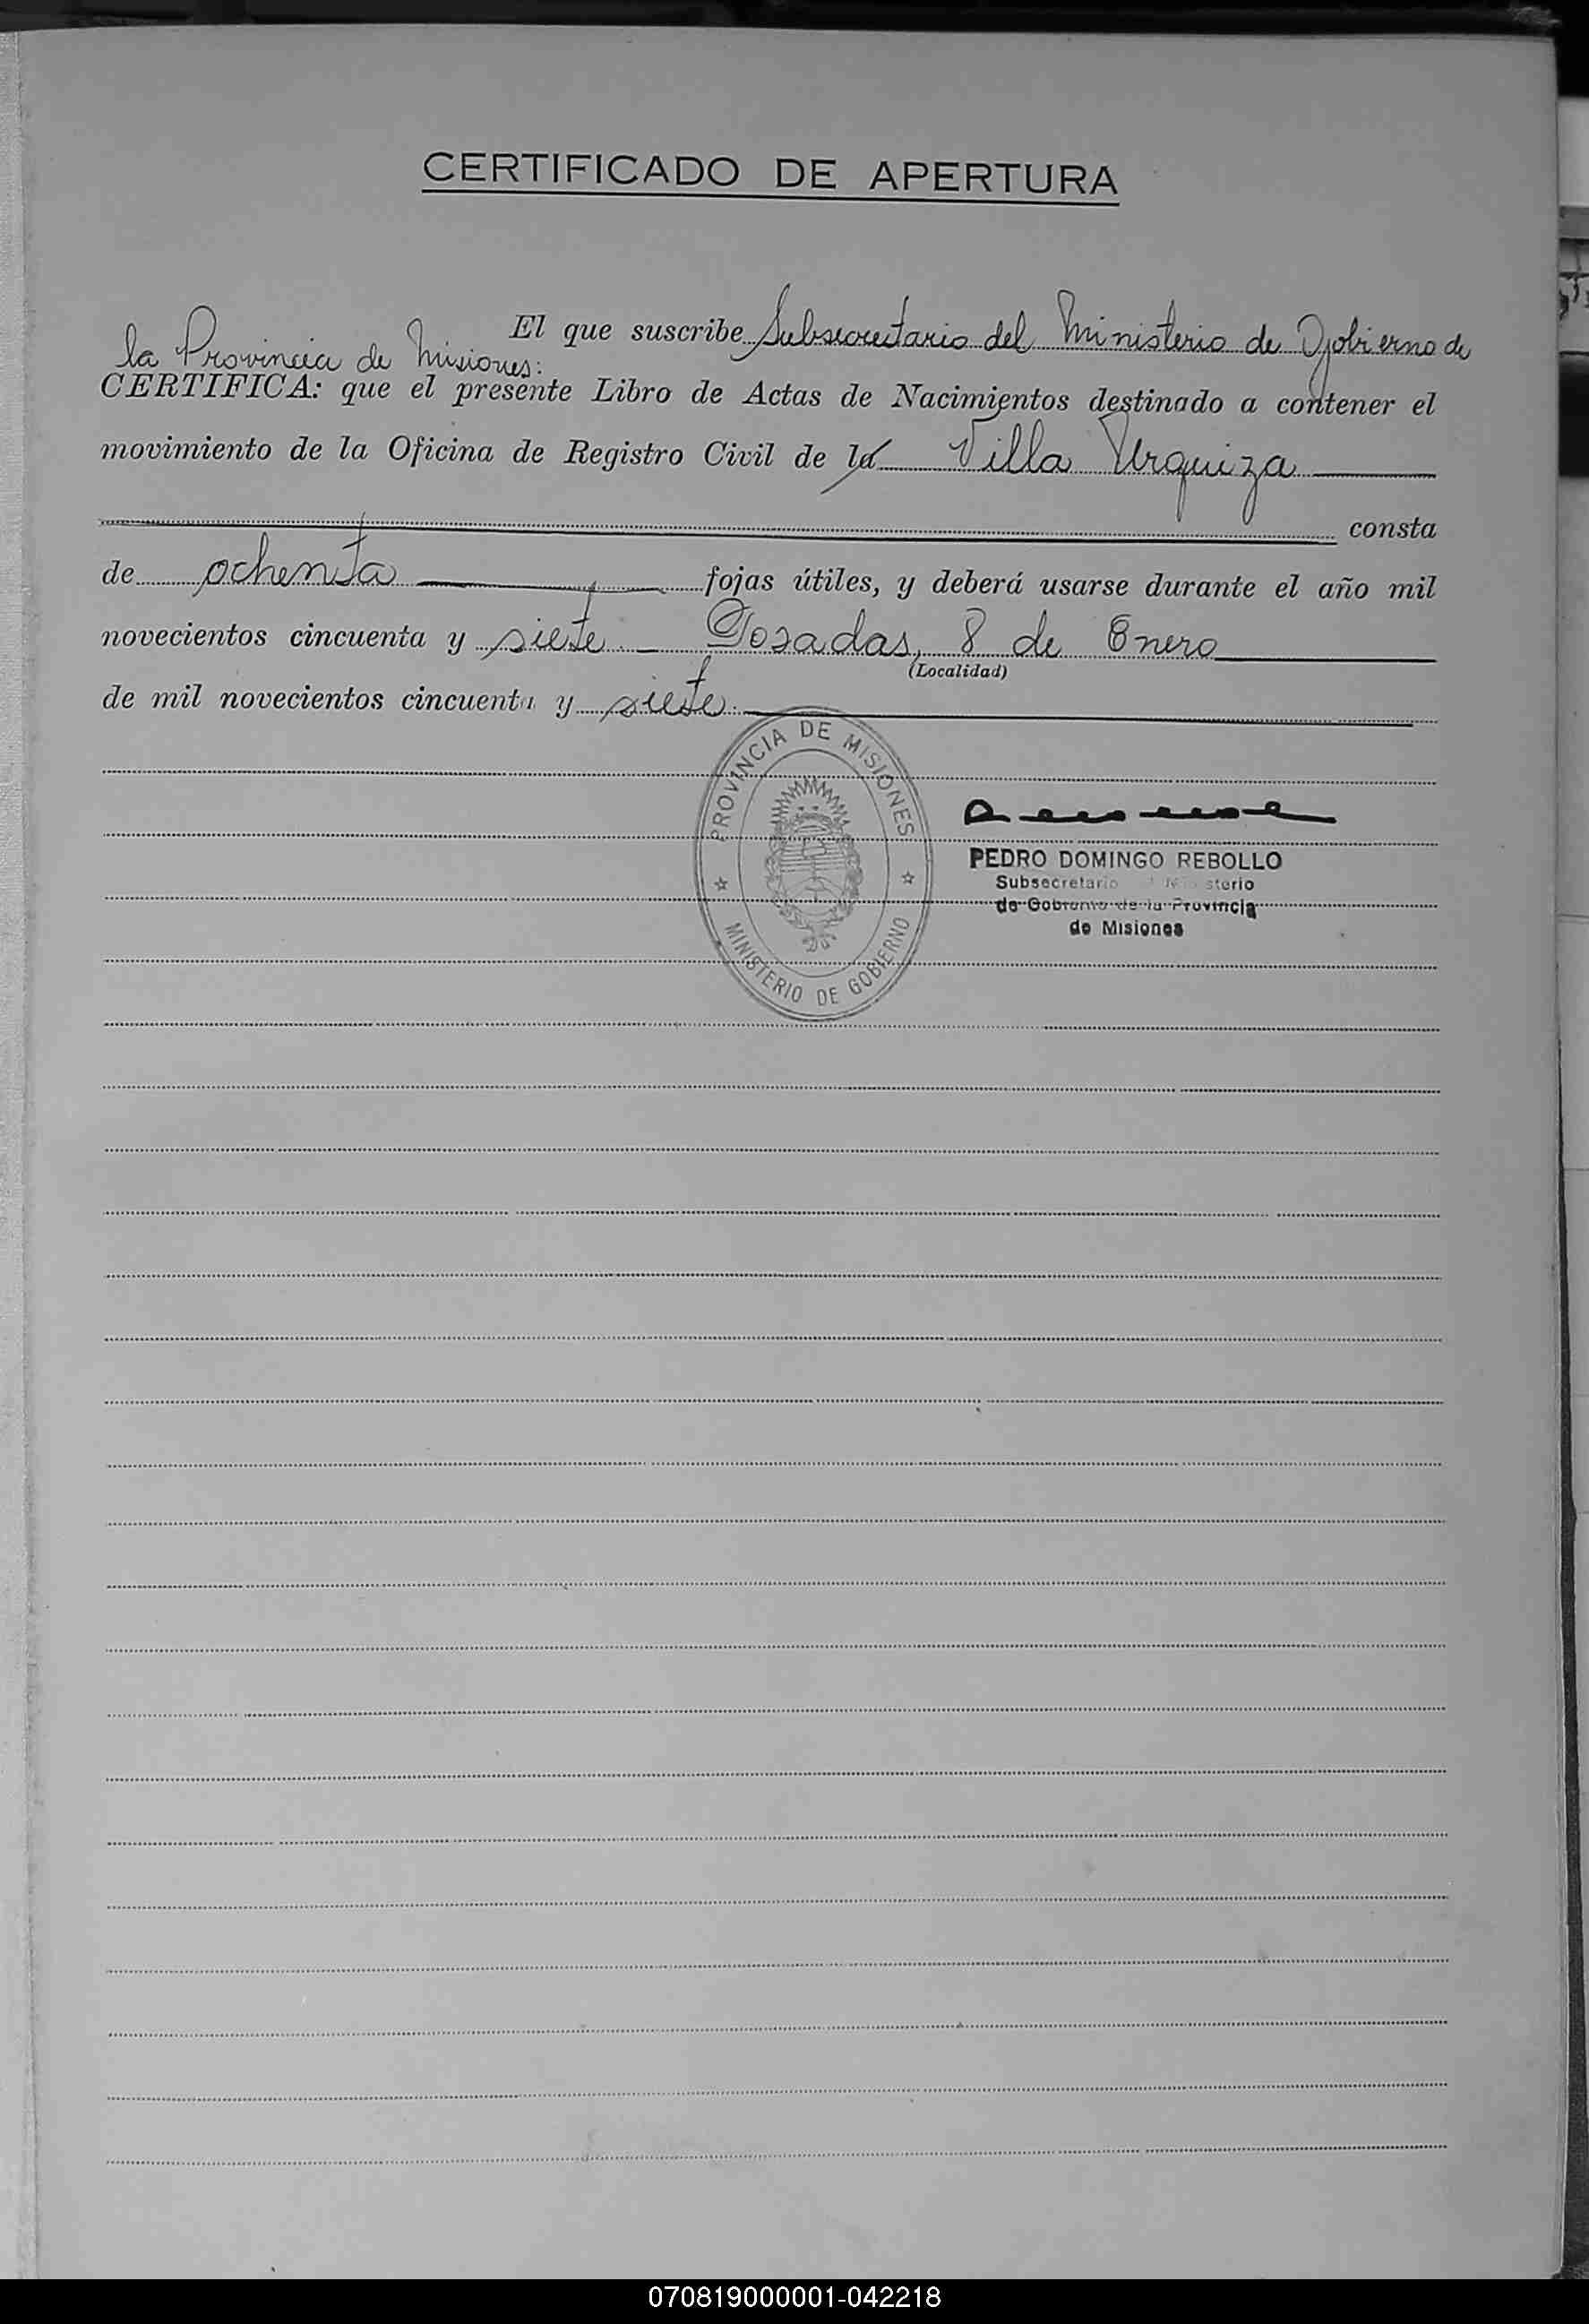 CERTIFICADO DE APERTURA
El que suscribe Subsecretario del Ministerio de Gobierno de
la Provincia de Misiones:
CERTIFICA: que el presente Libro de Actas de Nacimientos destinado a contener el
movimiento de la Oficina de Registro Civil de la Villa Urquiza
consta
de ochenta fojas útiles, y deberá usarse durante el año mil
novecientos cincuenta y siete. Posadas, 8 de Enero
(Localidad)
de mil novecientos cincuenta y siete.
PROVINCIA DE MISIONES
MINISTERIO DE GOBIERNO
PEDRO DOMINGO REBOLLO
Subsecretario
de Gobierno de la Provincia
de Misiones
070819000001-042218